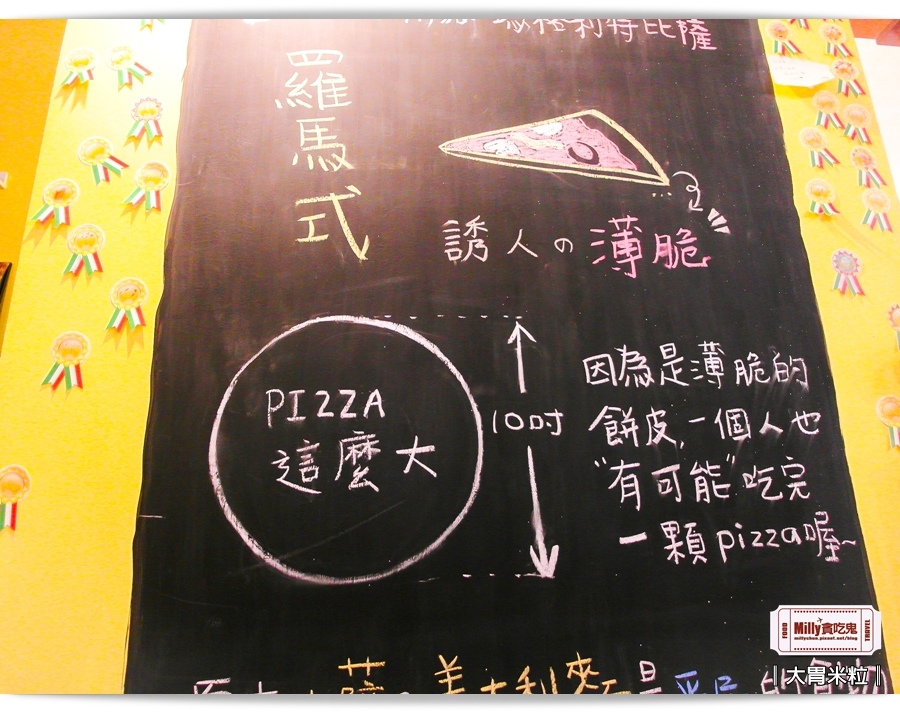 瑪格利特比薩
羅馬式
誘人の薄脆
PIZZA
這麼大
10吋
因為是薄脆的
餅皮,一個人也
"有可能"吃完
一顆pizza喔~
義大利來
是
的食物
FOOD
Milly貪吃鬼
millychun.pixnet.net/blog
TRAVEL
‖大胃米粒‖